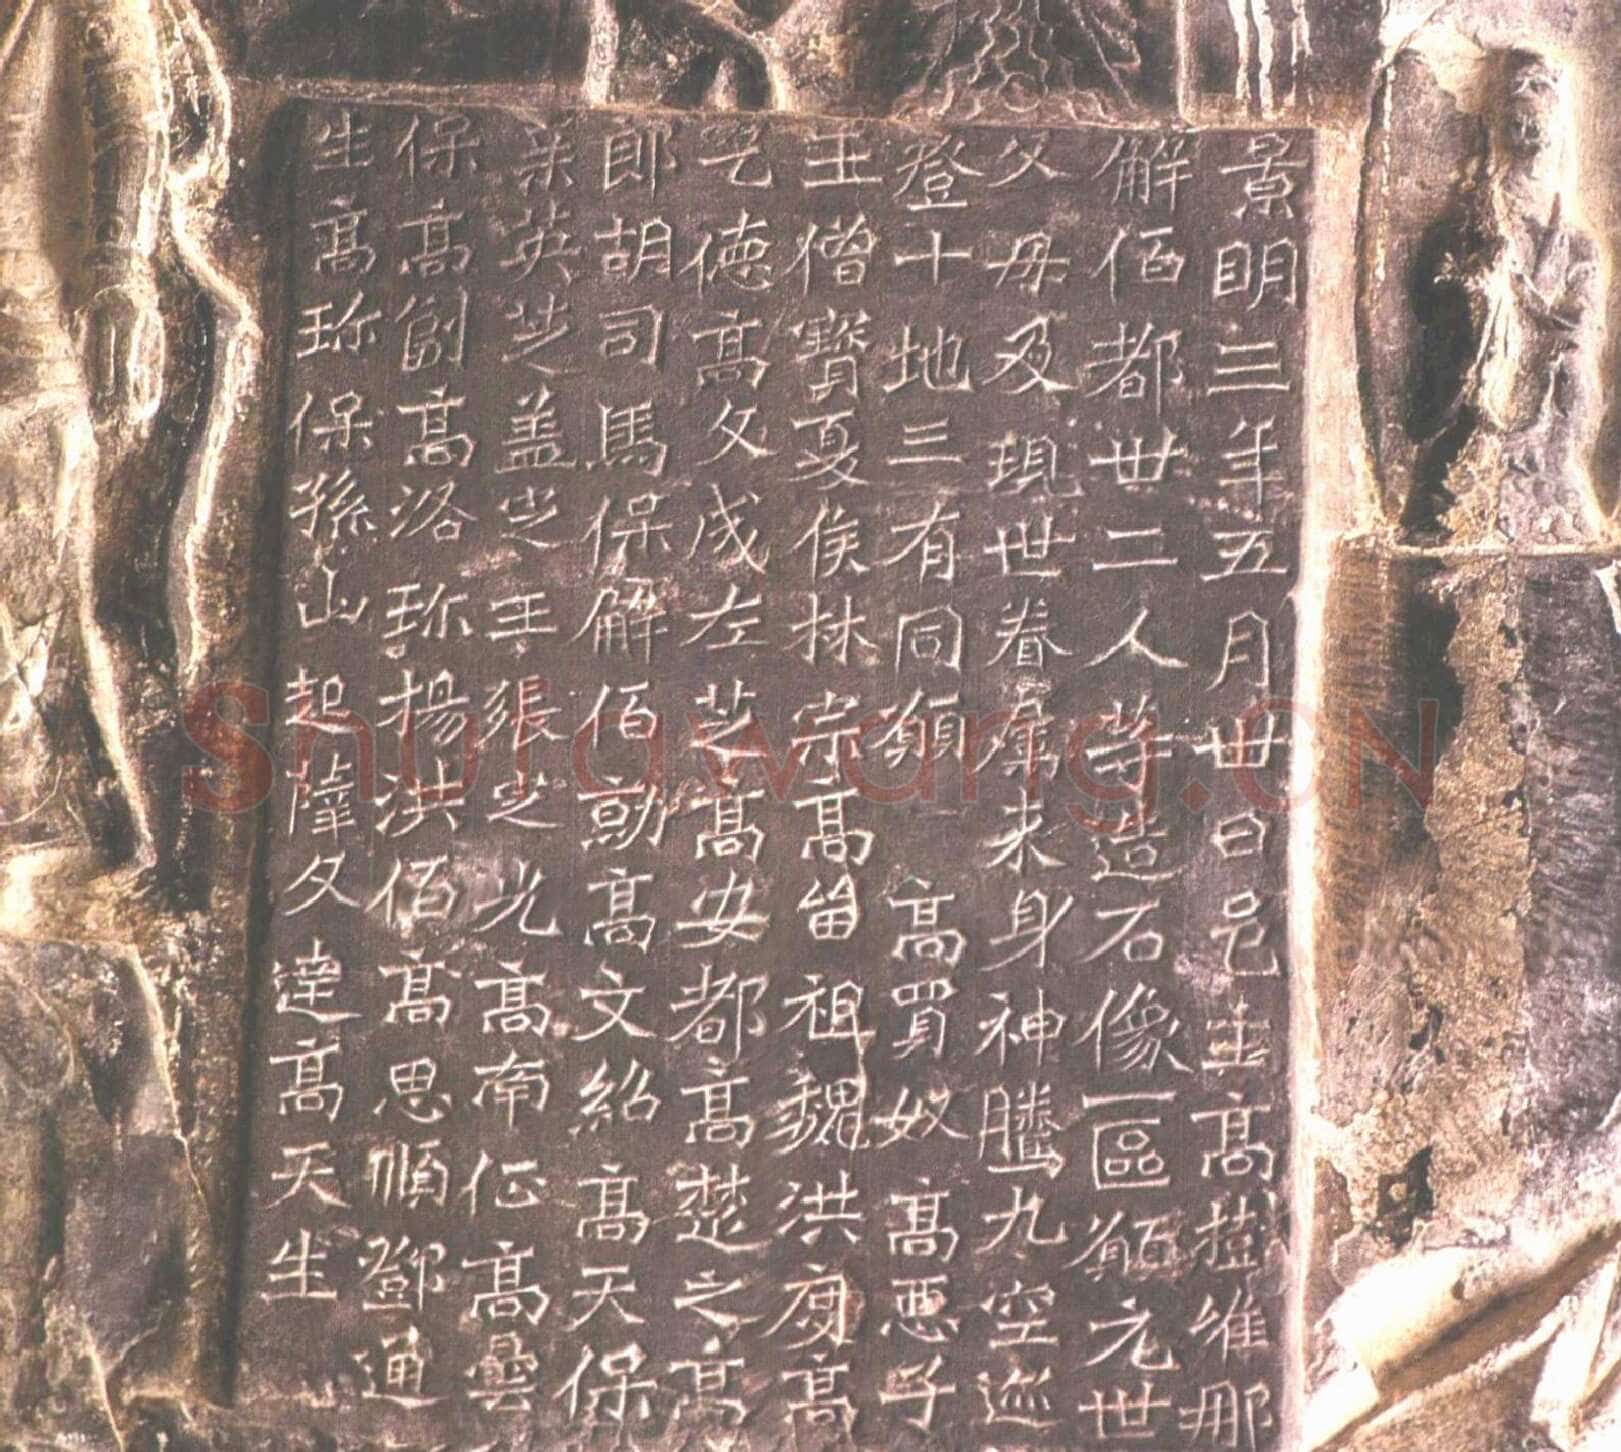 景明三年五月卅日邑主高樹維那
解佰都卅二人等造石像一區願元世
父母及現世眷屬来身神騰九空迹
登十地三有同願　高買奴高惡子
王僧寶夏侯林宗高留祖魏洪度高
乞德高文成左芝高安都高楚之高
郎胡司馬保解佰勍高文紹高天保
英芝盖之王張芝光高南征高曇
保高創高洛珎楊洪佰高思順鄧通
生高珎保孫山起薩文達高天生
Shufawang.CN